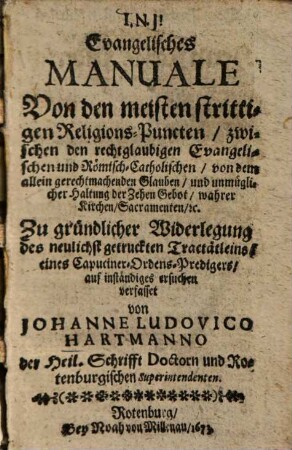 I. N. J!
Evangelisches
MANUALE
Von den meisten stritti-
gen Religions-Puncten / zwi-
schen den rechtglaubigen Evangeli-
schen und Römisch-Catholischen / von dem
allein gerechtmachenden Glauben / und unmügli-
cher Haltung der Zehen Gebot / wahrer
Kirchen / Sacramenten / ꝛc.
Zu gründlicher Widerlegung
des neulichst getruckten Tractätleins /
eines Capuciner-Ordens-Predigers /
auf inständiges ersuchen
verfasset
von
JOHANNE LUDOVICO
HARTMANNO
der Heil. Schrifft Doctorn und Ro-
tenburgischen Superintendenten.
Rotenburg /
Bey Noah von Millenau /